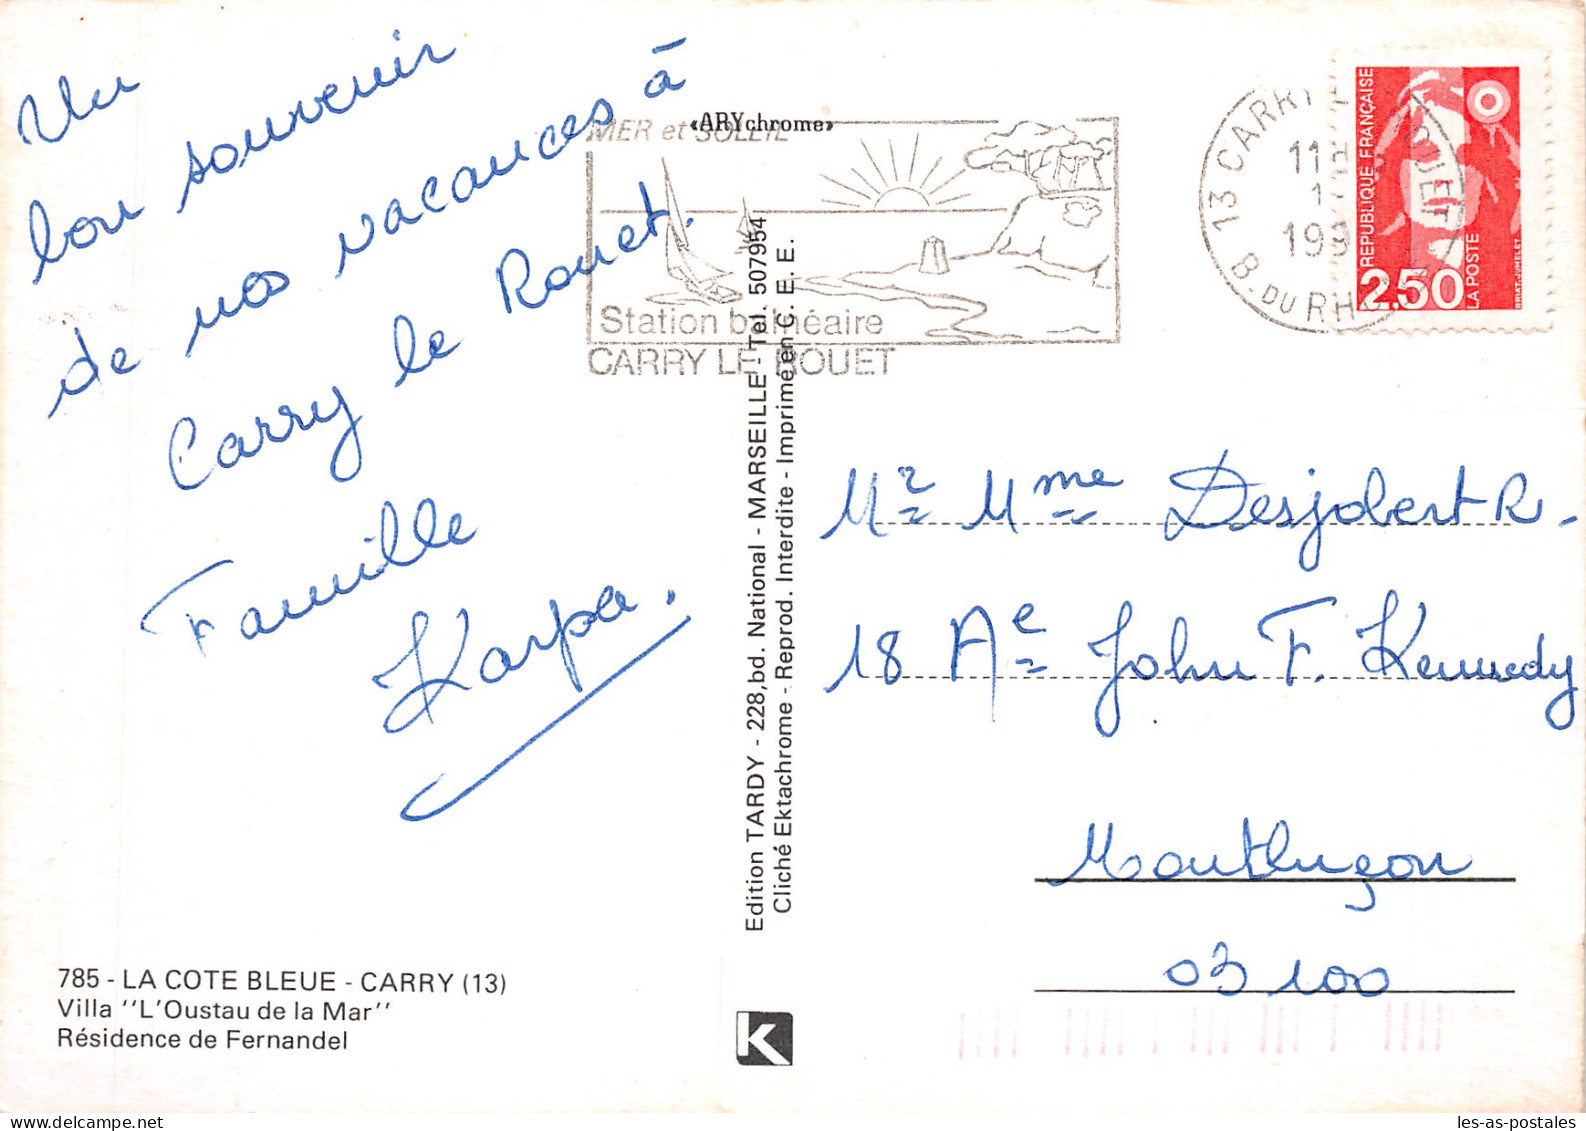 Un
bon souvenir
de nos vacances à
Carry le Rouet.
Famille
Karpa.
785 - LA COTE BLEUE - CARRY (13)
Villa ''L'Oustau de la Mar''
Résidence de Fernandel
«ARYchrome»
MER et SOLEIL
Station balnéaire
CARRY LE ROUET
Edition TARDY - 228,bd. National - MARSEILLE - Tel. 507954
Cliché Ektachrome - Reprod. Interdite - Imprimé en C. E. E.
K
13 CARRY
ROUET
11H
199
B. DU RH
REPUBLIQUE FRANÇAISE
2,50
LA POSTE
BRIAT-JUMELET
Mr Mme Desjobert R.
18 Ae John F. Kennedy
Montluçon
03100
les-as-postales